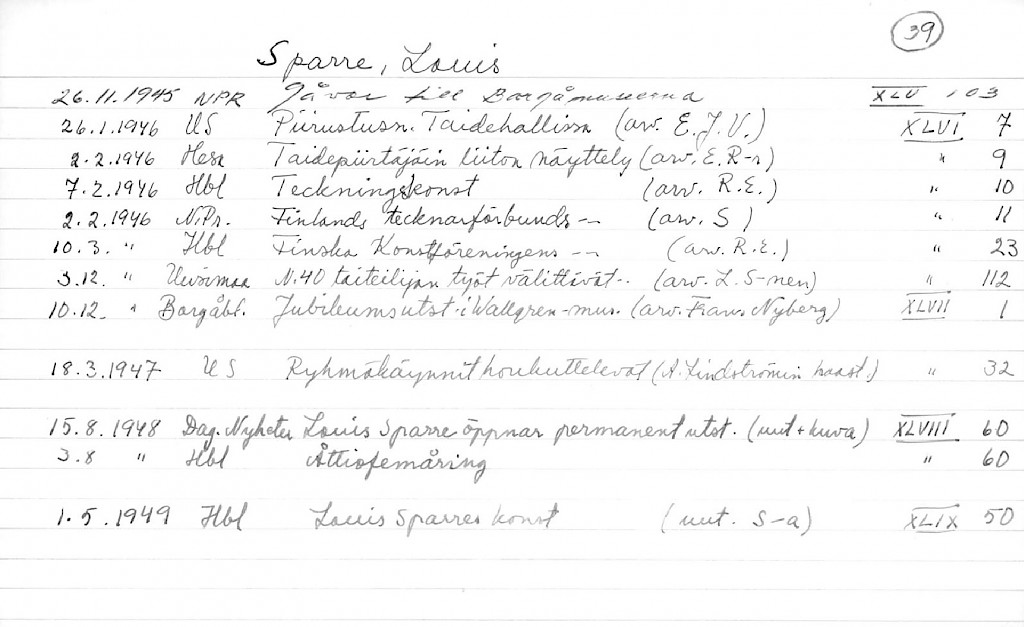 39
Sparre, Louis
26.11.1945 NPR Gåvor till Borgåmuseerna XLV 103
26.1.1946 US Piirustusn. Taidehallissa (arv. E.J.V.) XLVI 7
2.2.1946 Hesa Taidepiirtäjäin liiton näyttely (arv. E.R-r) " 9
7.2.1946 Hbl Teckningskonst (arv. R.E.) " 10
2.2.1946 N.Pr. Finlands tecknarförbunds -- (arv. S) " 11
10.3. " Hbl Finska Konstföreningens -- (arv. R.E.) " 23
3.12. " Uusimaa N. 40 taiteilijan työt välittävät-. (arv. L. S-nen) " 112
10.12. " Borgåbl. Jubileumsutst. i Wallgren-mus. (arv. Frans Nyberg) XLVII 1
18.3.1947 US Ryhmäkäynnit houkuttelevat (A. Lindströmin haast.) " 32
15.8.1948 Dag. Nyheter Louis Sparre öppnar permanent utst. (uut + kuva) XLVIII 60
3.8 " Hbl Åttiofemåring " 60
1.5.1949 Hbl Louis Sparres konst (uut. S-a) XLIX 50